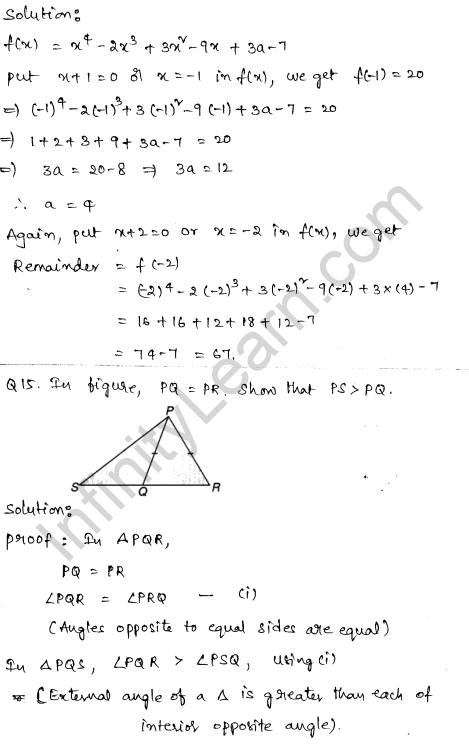 Solution:
f(x) = x⁴ - 2x³ + 3x² - 9x + 3a - 7
put x+1=0 or x=-1 in f(x), we get f(-1) = 20
⇒ (-1)⁴ - 2(-1)³ + 3(-1)² - 9(-1) + 3a - 7 = 20
⇒ 1 + 2 + 3 + 9 + 3a - 7 = 20
⇒ 3a = 20 - 8 ⇒ 3a = 12
∴ a = 4
Again, put x+2=0 or x=-2 in f(x), we get
Remainder = f(-2)
= (-2)⁴ - 2(-2)³ + 3(-2)² - 9(-2) + 3×(4) - 7
= 16 + 16 + 12 + 18 + 12 - 7
= 74 - 7 = 67.
Q15. In figure, PQ = PR. Show that PS > PQ.
P
S Q R
Solution:
Proof: In △PQR,
PQ = PR
∠PQR = ∠PRQ — (i)
(Angles opposite to equal sides are equal)
In △PQS, ∠PQR > ∠PSQ, using (i)
(External angle of a △ is greater than each of
interior opposite angle).
InfinityLearn.com